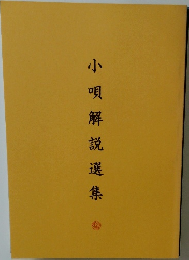 小唄解説選集